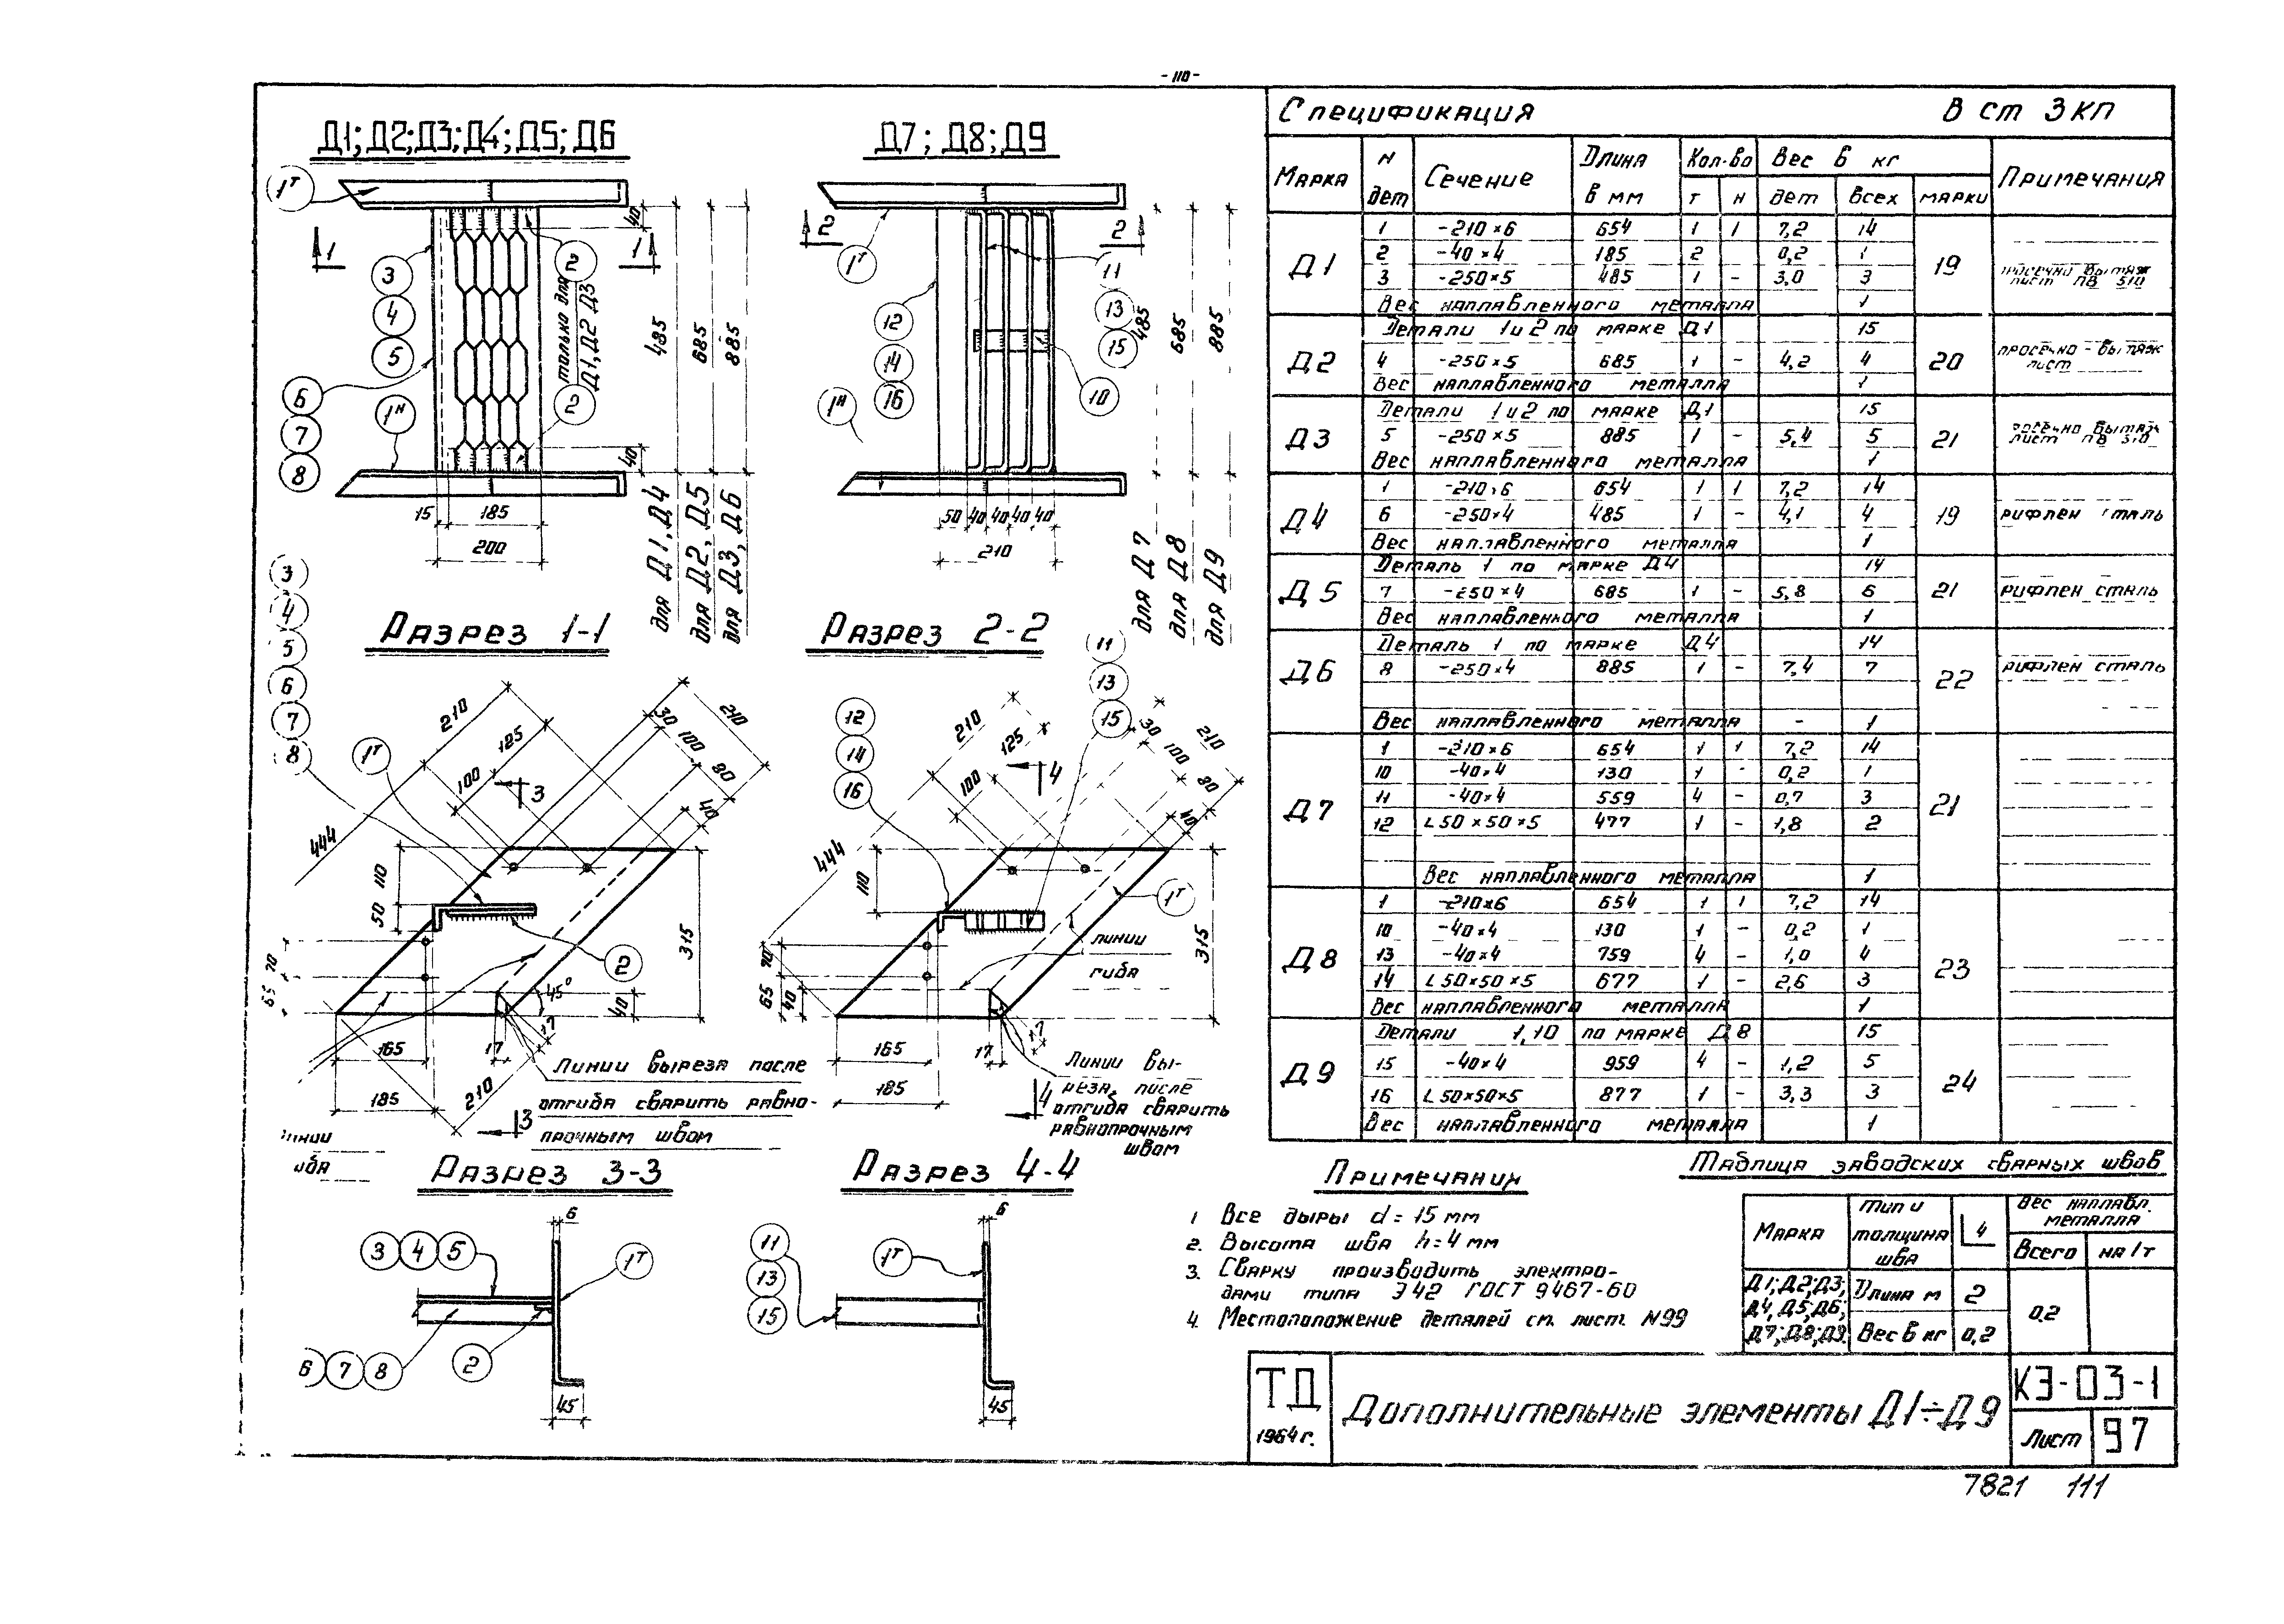 - 110 -
Д1; Д2; Д3; Д4; Д5; Д6
1т
1
1
2
только для
Д1, Д2 Д3
2
3
4
5
6
7
8
1н
40
40
485
685
885
15
185
200
для Д1, Д4
для Д2, Д5
для Д3, Д6
Д7; Д8; Д9
2
2
1т
1н
12
14
16
11
13
15
10
485
685
885
50 40 40 40 40
210
для Д7
для Д8
для Д9
Разрез 1-1
3
4
5
6
7
8
1т
210
125
100
444
30
100
80
210
40
3
110
50
70
65
2
315
45°
40
17
17
165
185
210
3
Линии выреза после
отгиба сварить равно-
прочным швом
Разрез 2-2
12
14
16
11
13
15
210
125
100
444
30
100
80
210
40
4
110
70
65
40
1т
315
линии
гиба
17
17
165
185
4
Линии вы-
реза, после
отгиба сварить
равнопрочным
швом
Разрез 3-3
6
3 4 5
1т
6 7 8
2
45
Разрез 4-4
6
11
13
15
1т
45
Спецификация В ст 3кп
Марка N дет Сечение Длина в мм Кол-во Вес в кг Примечания
т н дет всех марки
Д1 1 -210×6 654 1 1 7,2 14 19
2 -40×4 185 2 0,2 1
3 -250×5 485 1 - 3,0 3 просечно вытяж лист ПВ 510
Вес наплавленного металла 1
Д2 Детали 1 и 2 по марке Д1 15 20
4 -250×5 685 1 - 4,2 4 просечно-вытяж лист
Вес наплавленного металла 1
Д3 Детали 1 и 2 по марке Д1 15 21
5 -250×5 885 1 - 5,4 5 просечно вытяж лист ПВ 510
Вес наплавленного металла 1
Д4 1 -210×6 654 1 1 7,2 14 19
6 -250×4 485 1 - 4,1 4 рифлен сталь
Вес наплавленного металла 1
Д5 Деталь 1 по марке Д4 14 21
7 -250×4 685 1 - 5,8 6 рифлен сталь
Вес наплавленного металла 1
Д6 Деталь 1 по марке Д4 14 22
8 -250×4 885 1 - 7,4 7 рифлен сталь
Вес наплавленного металла - 1
Д7 1 -210×6 654 1 1 7,2 14 21
10 -40×4 130 1 - 0,2 1
11 -40×4 559 4 - 0,7 3
12 L50×50×5 477 1 - 1,8 2
Вес наплавленного металла 1
Д8 1 -210×6 654 1 1 7,2 14 23
10 -40×4 130 1 - 0,2 1
13 -40×4 759 4 - 1,0 4
14 L50×50×5 677 1 - 2,6 3
Вес наплавленного металла 1
Д9 Детали 1,10 по марке Д8 15 24
15 -40×4 959 4 - 1,2 5
16 L50×50×5 877 1 - 3,3 3
Вес наплавленного металла 1
Примечания
1 Все дыры d = 15 мм
2. Высота шва h = 4 мм
3. Сварку производить электро-
дами типа Э42 ГОСТ 9467-60
4. Местоположение деталей см. лист N99
Таблица заводских сварных швов
Марка Тип и толщина шва 4 Вес наплавл. металла
Всего на 1т
Д1; Д2; Д3; Длина м 2 0.2
Д4, Д5; Д6;
Д7; Д8; Д9. Вес в кг 0,2
ТД
1964 г.
Дополнительные элементы Д1÷Д9
КЭ-03-1
Лист 97
7821 111